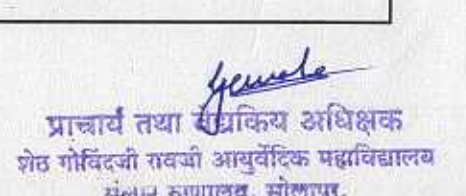 प्राचार्य तथा वैद्यकिय अधिक्षक
शेठ गोविंदजी रावजी आयुर्वेदिक महाविद्यालय
संलग्न रुग्णालय, सोलापूर